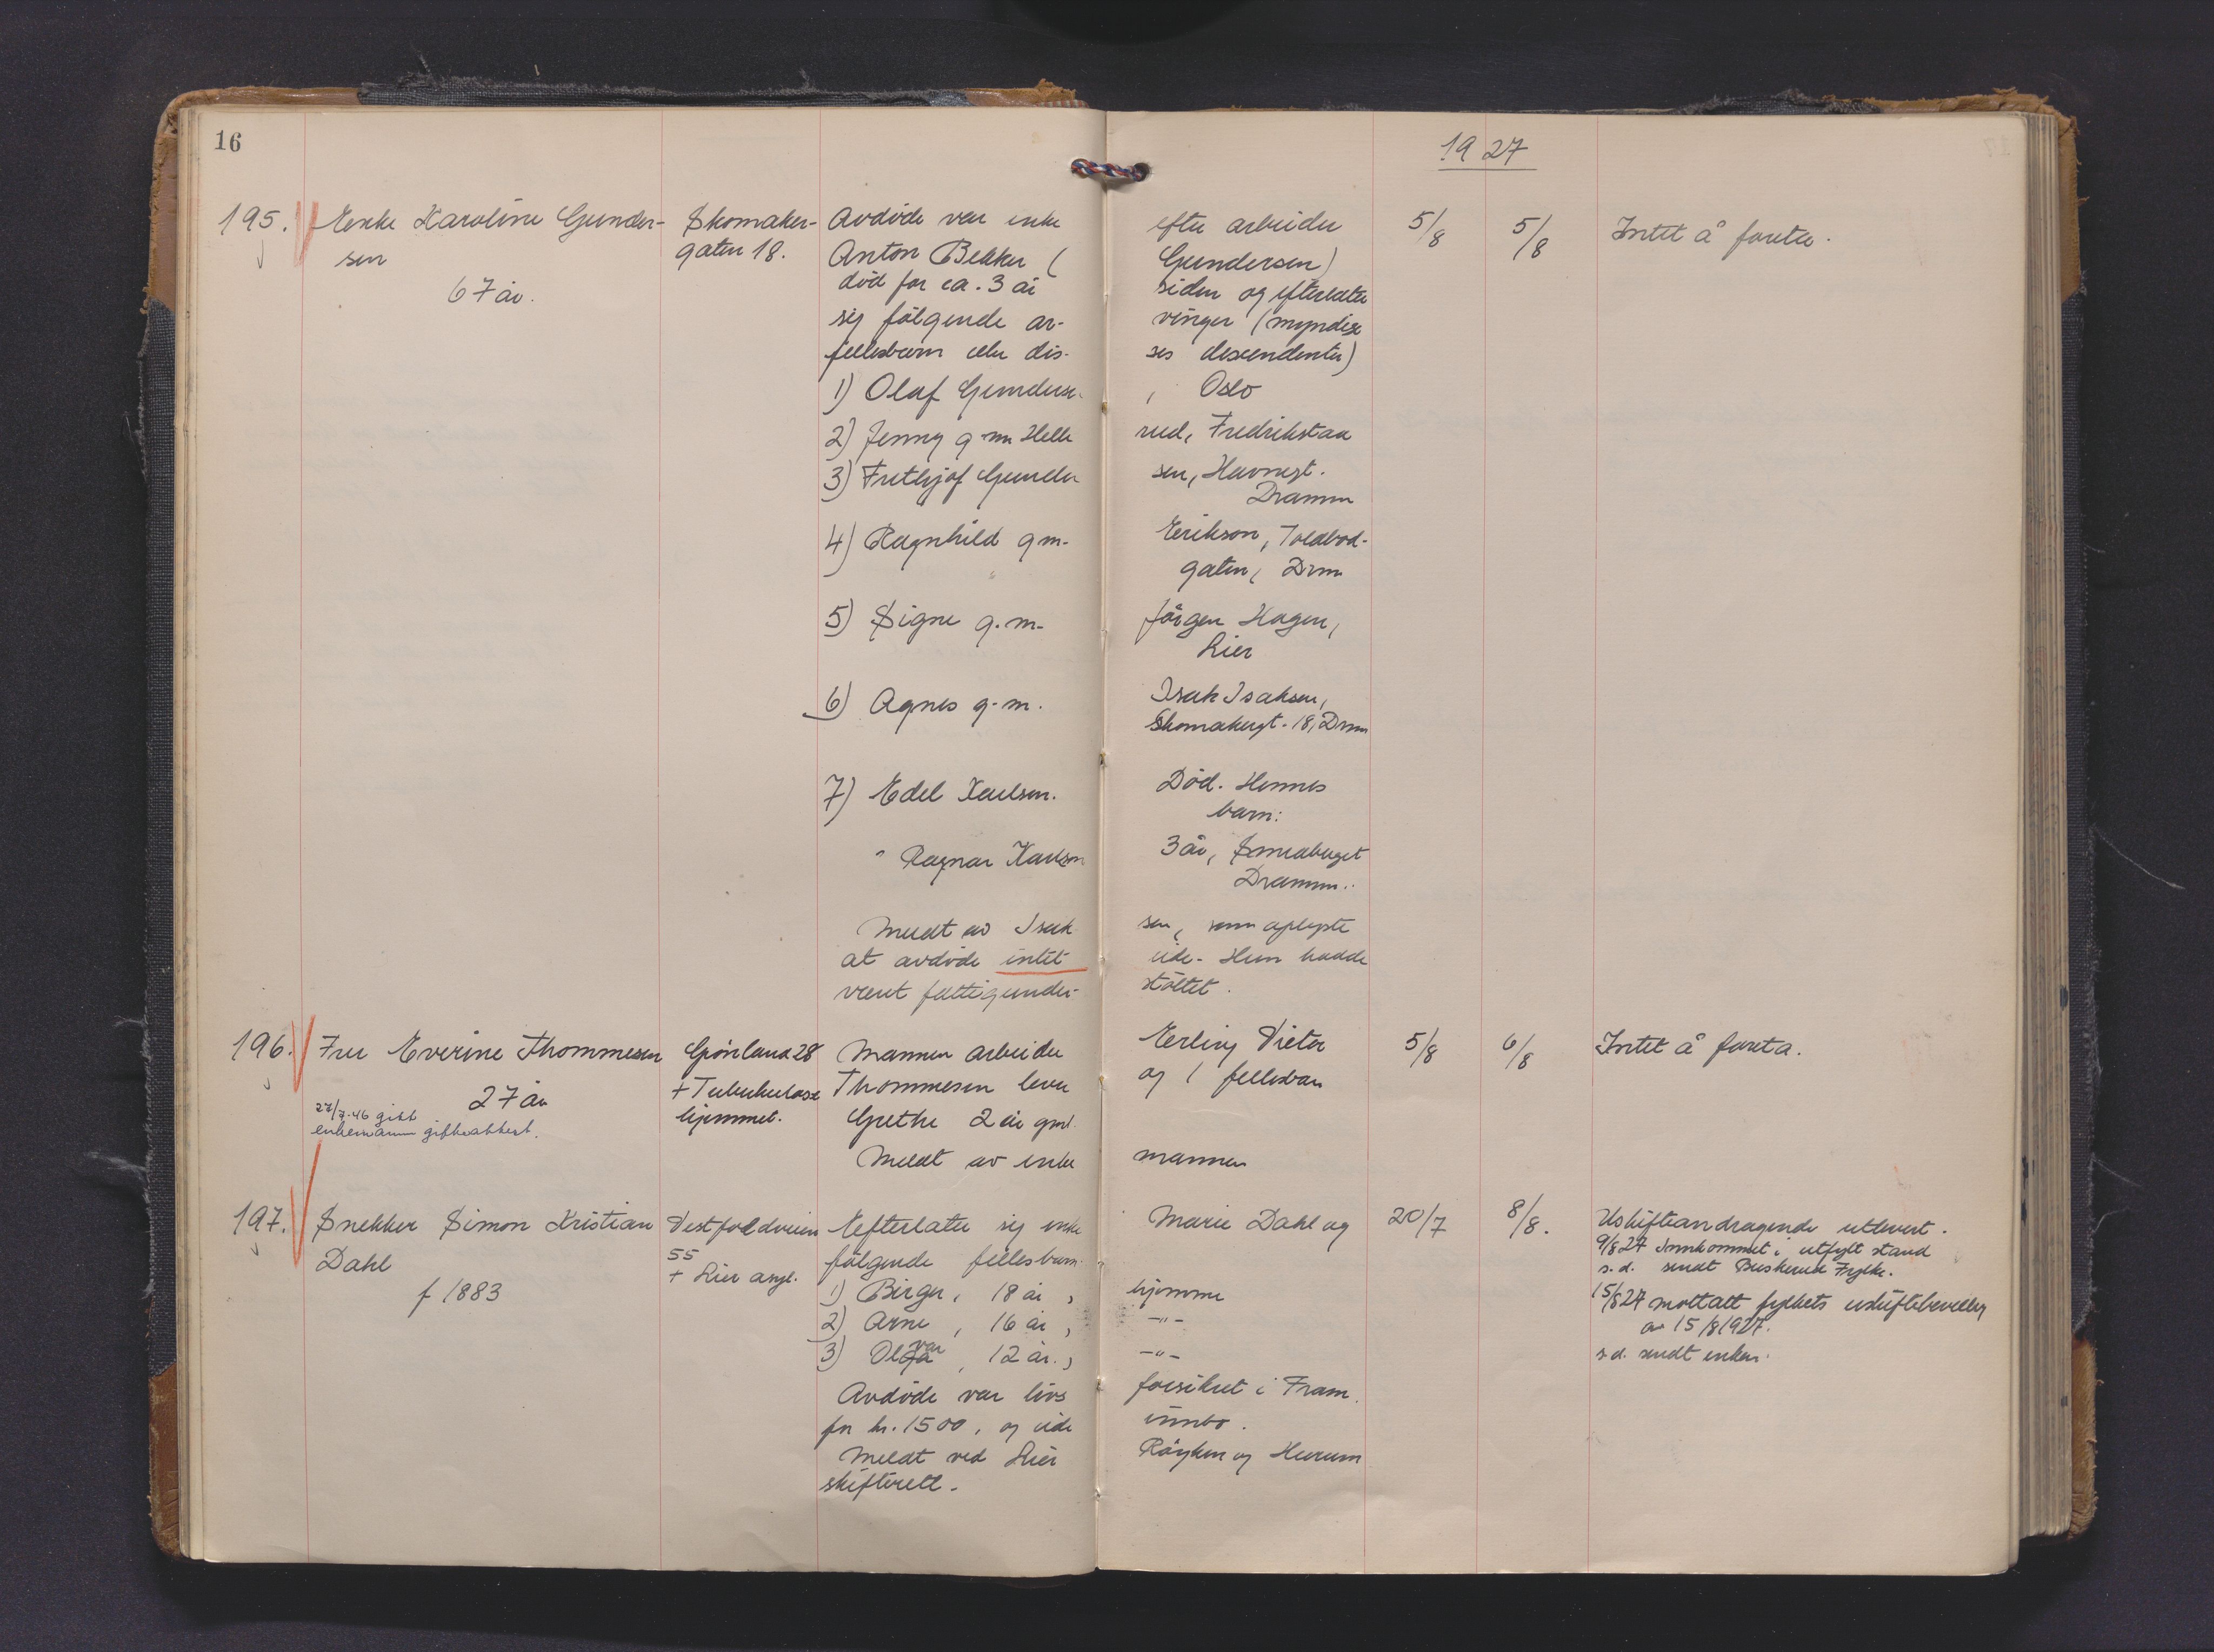 16
19 27
195. Enke Karoline Gunder- Skomaker- Avdöde var enke efter arbeider 5/8 5/8 Intet å foreta.
sen gaten 18. Anton Bekker ( Gundersen)
67 år. död for ca. 3 år siden og efterlater
sig fölgende ar- vinger (myndige
fellesbarn eller dis- ses descendenter)
1) Olaf Gundersen, Oslo
2) Jenny g.m. Helle rud, Fredrikstad
3) Frithjof Gunder sen, Havnegt.
Drammen
4) Ragnhild g.m. Erikson, Toldbod-
gaten, Drm
5) Signe g.m. Jörgen Hagen,
Lier
6) Agnes g.m. Isak Isaksen,
Skomakergt. 18, Drmn
7) Edel Karlsen. Död. Hennes
barn:
" Ragnar Karlsen 3 år,
Drammen.
Meldt av Isak sen, som oplyste
at avdöde intet eide. Hun hadde
vært fattigunder- stöttet.
196. Fru Everine Thommesen Grönland 28 Mannen arbeider Erling Victor 5/8 6/8 Intet å foreta.
27 år + Tuberkulose Thommesen lever og 1 fellesbarn
27/7-46 gitt hjemmet. Grethe 2 år gml.
enkemann gifteattest.
Meldt av enke mannen
197. Snekker Simon Kristian Vestfoldveien Efterlater sig enke Marie Dahl og 20/7 8/8. Uskifteandragende utlevert.
Dahl 55 fölgende fellesbarn: 9/8 27 Innkommet i utfylt stand
f 1883 + Lier asyl. s.d. sendt Buskerud Fylke.
1) Birger, 18 år, hjemme 15/8 27 mottatt fylkets uskiftebevilling
2) Arne, 16 år, -"- av 15/8 1927.
3) Olavar, 12 år., -"- s.d. sendt enken.
Avdöde var livs forsikret i Fram.
for kr. 1500, og eide innbo.
Meldt ved Lier Röyken og Hurum
skifterett.